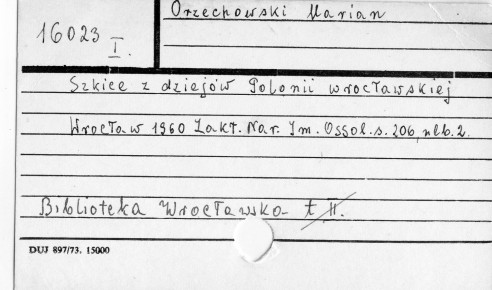 Orzechowski Marian
16023
I.
Szkice z dziejów Polonii wrocławskiej
Wrocław 1960 Zakł. Nar. Im. Ossol. s. 206, nlb. 2.
Biblioteka Wrocławska t. II.
DUJ 897/73. 15000